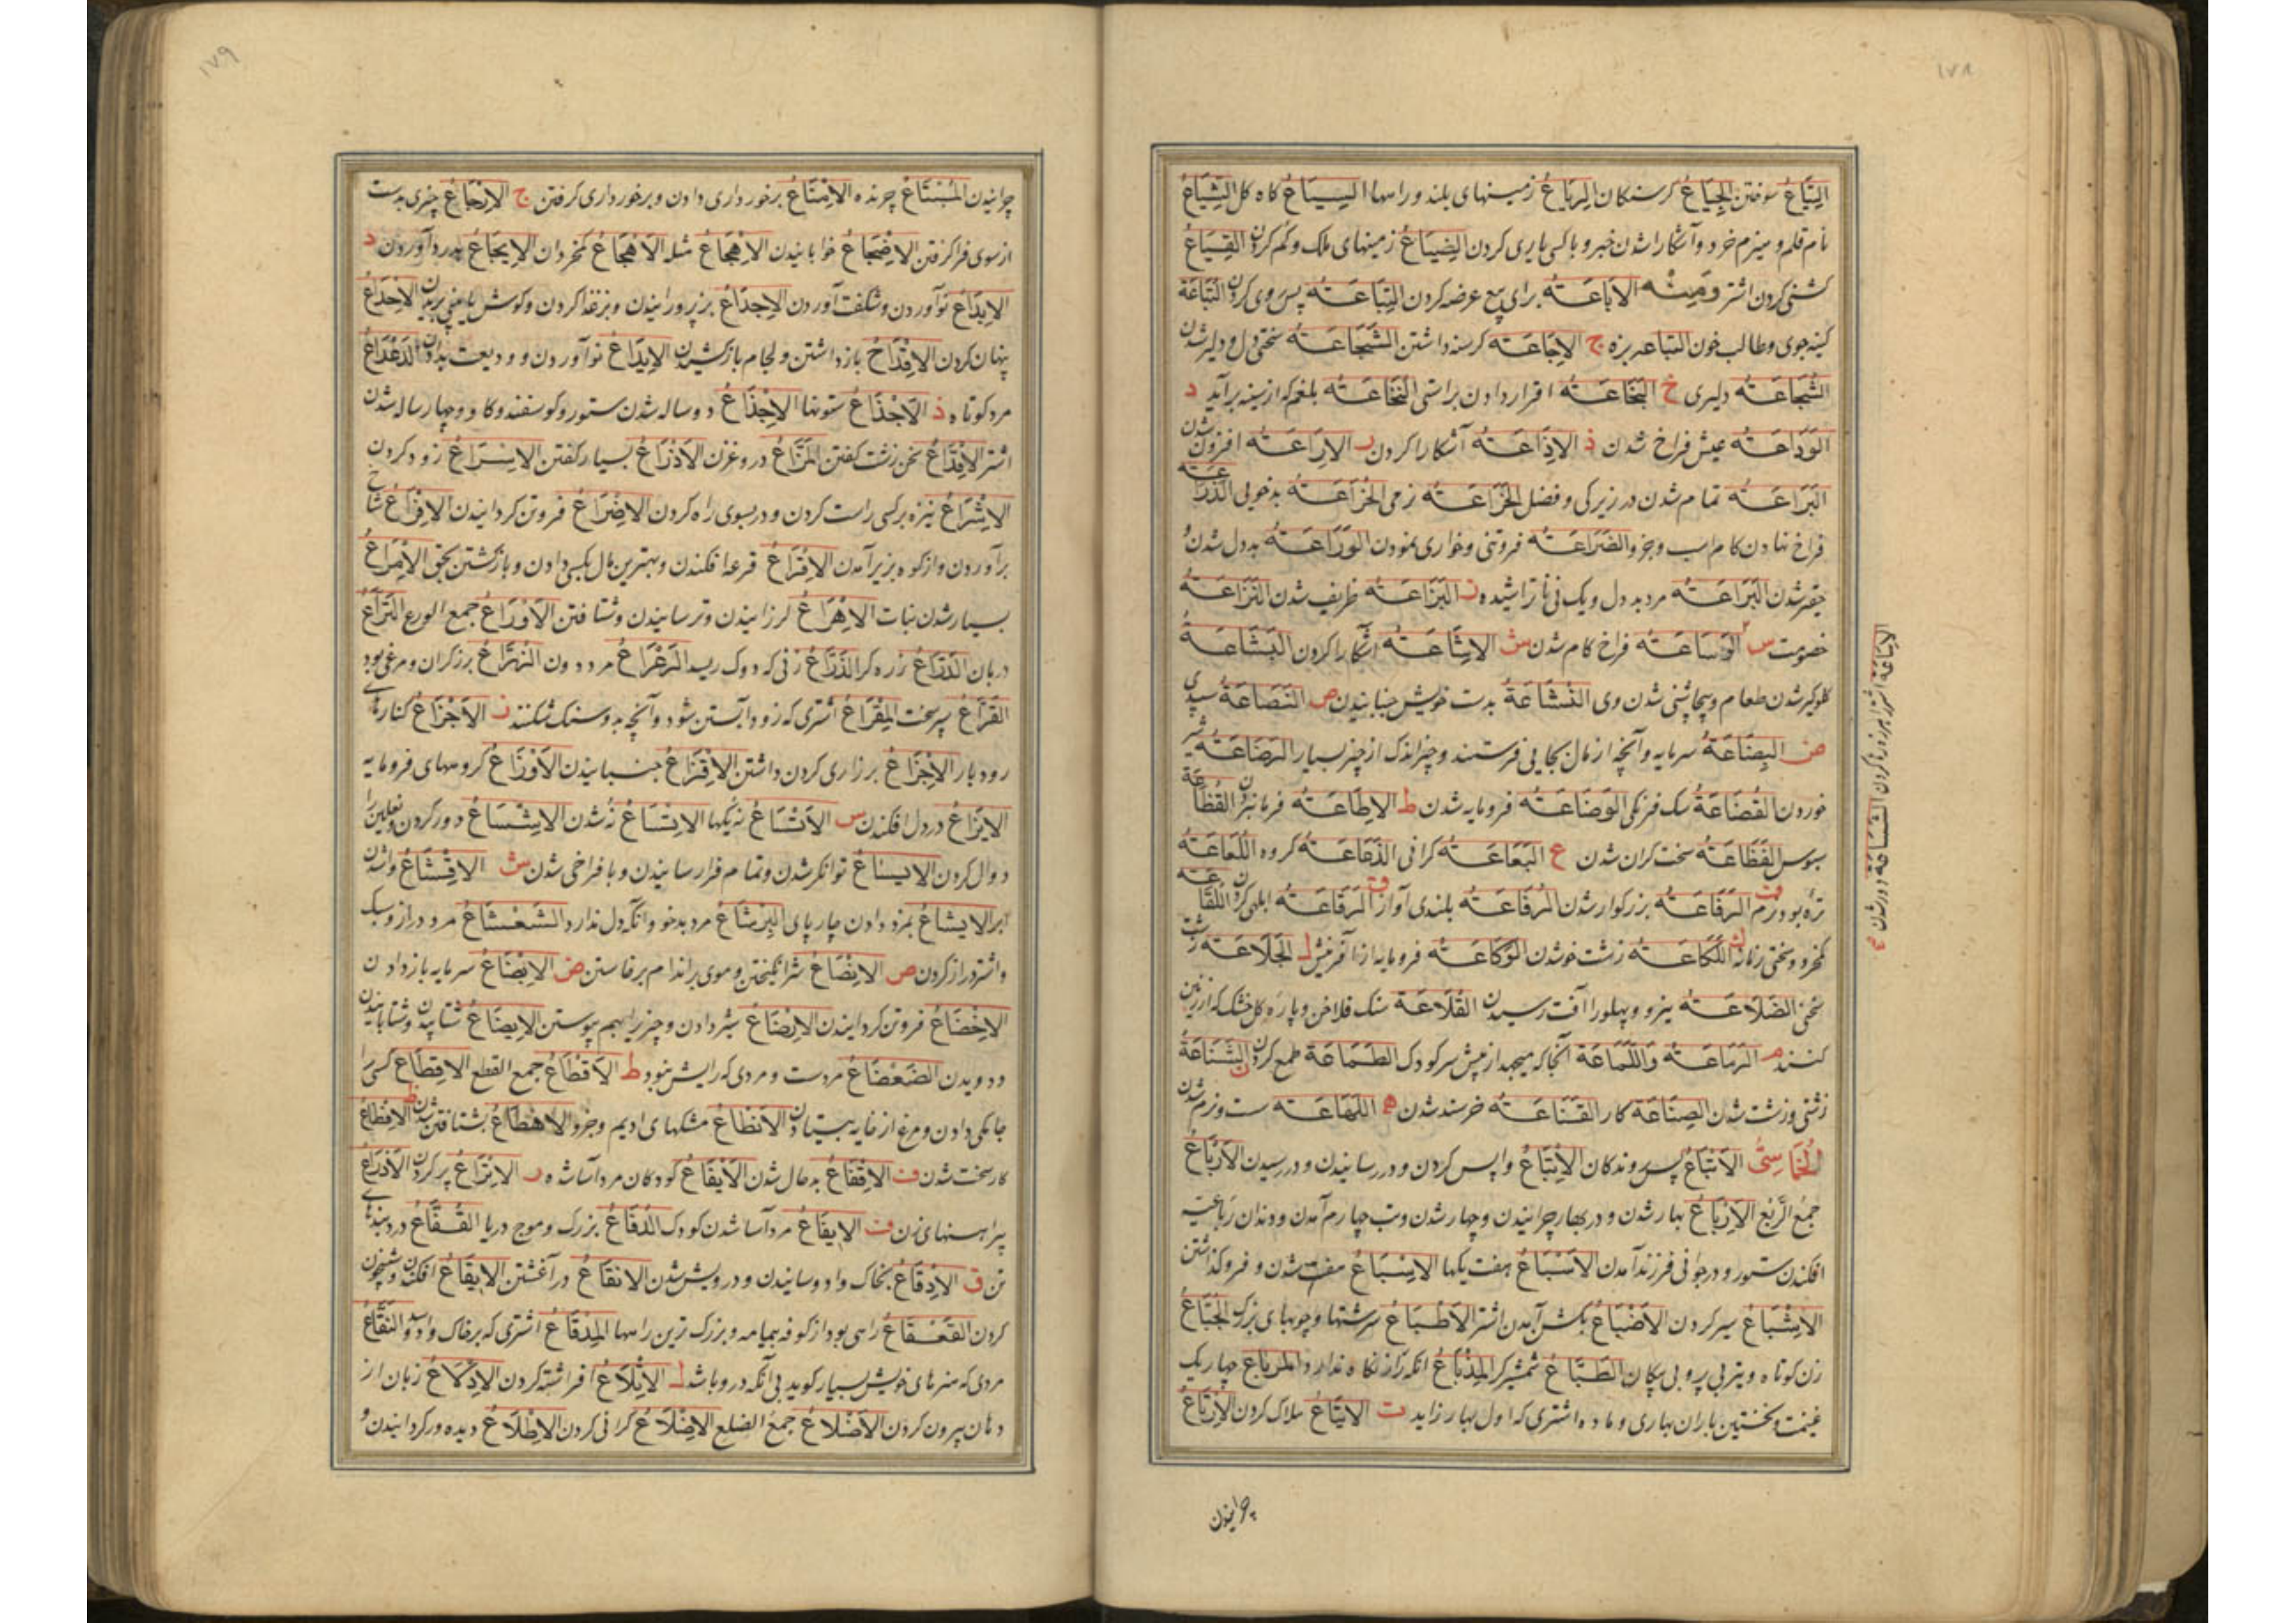 ١٧٨
سوختن الجِيَاعُ کرسنکان الرِيَاعُ زمینهای بلند و راهها السِيَاعُ کاه کل الشِيَاعُ
نام قلم و هیزم خرد و آشکارا شدن خبر و با کسی یاری کردن الضِيَاعُ زمینهای ملک و کم کردن
کشنی کردن اشتر ومنه الاِبَاعَتُه برای بیع عرضه کردن التِبَاعَتُه پس روی کردن التَبَاعَة
کینه جوی و طالب خون التباعه بزه ج الاِجَاعَتُه کرسنه داشتن الشَجَاعَتُه سختی دل و دلیر شدن
الشُجَاعَتُه دلیری خ البَخَاعَتُه اقرار دادن براستی النُخَاعَتُه بلغم که از سینه برآید د
الوَدَاعَتُه عیش فراخ شدن ذ الاِذَاعَتُه آشکارا کردن ر الاِرَاعَتُه افزون شدن
البَرَاعَتُه تمام شدن در زیرکی و فضل الخَرَاعَتُه نرمی الخَرَاعَتُه بدخویی الذَرَاعَتُه
فراخ نهادن کام اسب و جزو الضَرَاعَتُه فروتنی و خواری نمودن الوَرَاعَتُه بددل شدن و
حقیر شدن اليَرَاعَتُه مرد بددل و یک نی ناتراشیده ز البَزَاعَتُه ظریف شدن النَزَاعَتُه
خصومت س الوَسَاعَتُه فراخ کام شدن ش الاِشَاعَتُه آشکارا کردن البَشَاعَتُه
کلوکیر شدن طعام و بیچاشنی شدن وی النُشَاعَةُ بدست خویش جنبانیدن ص النَصَاعَةُ سپیدی
ض البِضَاعَةُ سرمایه و آنچه از مال بجایی فرستند و چیز اندک از چیز بسیار الرَضَاعَتُه شیر
خوردن القُضَاعَةُ سک فرنکی الوَضَاعَتُه فرومایه شدن ط الاِطَاعَتُه فرمانبردن القُطَاعَة
سبوس الفَظَاعَتُه سخت کران شدن ع البَعَاعَتُه کرانی الدُعَاعَتُه کروه اللُعَاعَتُه
تره بود نرم الرَفَاعَتُه بزرکوار شدن الرُفَاعَتُه بلندی آواز ق الرَقَاعَتُه ابلهی کردن اللُقَاعَتُه
ک اللَكَاعَتُه زشت خو شدن الوَكَاعَتُه فرومایه ل الجَلَاعَتُه
سخنی الضَلَاعَتُه نیرو و پهلو را آفت رسیدن القُلَاعَة سنک فلاخن و پاره کل خشک که از زمین
کنند م الرَمَاعَتُه وَاللَمَاعَة آنجا که میجهد از پیش سر کودک الطَمَاعَة طمع کردن ن الشَنَاعَةُ
زشتی و زشت شدن الصِنَاعَة کار القَنَاعَتُه خرسند شدن ه اللَهَاعَتُه سست و نرم شدن
الخُمَاسِىُّ الاَتبَاعُ پس روندکان الاِتبَاعُ واپس کردن و در رسانیدن و در رسیدن الاَربَاعُ
جمعُ الرَّبْع الاِربَاعُ بهار شدن و در بهار چرانیدن و چهار شدن و تب چهارم آمدن و دندان رباعیه
افکندن ستور و در جوانی فرزند آمدن الاَسْبَاعُ هفت یکها الاِسْبَاعُ هفت شدن و فرو کذاشتن
الاِشْبَاعُ سیر کردن الاِضْبَاعُ بکشن آمدن اشتر الاَطْبَاعُ سرشتها و جویهای بزرک الجُبَّاعُ
زن کوتاه و تیر بی پر و بی پیکان الطَبَّاعُ شمشیرکر المِذْيَاعُ آنکه راز نکاه ندارد المِربَاعُ چهار یک
غنیمت و نخستین باران بهاری و ماده اشتری که اول بهار زاید ت الايتَاعُ هلاک کردن الاِرتَاعُ
چرانیدن
الاِبَاعَةُ
دور شدن
١٧٩
چرانیدن المُستَاعُ چرنده الاِمتَاعُ برخورداری دادن و برخورداری کرفتن ج الاِرجَاعُ چیزی بدست
از سوی فرا کرفتن الاِضجَاعُ خوابانیدن الاِهجَاعُ مثله الاَهجَاعُ کمخردان الاِيجَاعُ بدرد آوردن د
الاِبدَاعُ نو آوردن و شکفت آوردن الاِجدَاعُ بزیر ورانیدن و بزغذا کردن و کوش یا بینی بریدن الاِخدَاعُ
پنهان کردن الاِقدَاعُ بازداشتن و لجام باز کشیدن الاِيدَاعُ نو آوردن و ودیعت بدادن الدَعدَاعُ
مرد کوتاه ذ الاَجذَاعُ ستونها الاِجذَاعُ دوساله شدن ستور و کوسفند و کاو و چهارساله شدن
اشتر الاِقذَاعُ سخن زشت کفتن المَذَّاعُ دروغزن الاِذرَاعُ بسیار کفتن الاِسرَاعُ زود کردن
الاِشرَاعُ نیزه بر کسی راست کردن و در بسوی راه کردن الاِضرَاعُ فروتن کردانیدن الاِفرَاعُ شاخ
برآوردن و از کوه بزیر آمدن الاِقرَاعُ قرعه افکندن و بهترین مال بکسی دادن و بازکشتن بحق الاِمرَاعُ
بسیار شدن نبات الاِهرَاعُ لرزانیدن و ترسانیدن و شتافتن الاَورَاعُ جمع الورع التَرَّاعُ
دربان الدَرَّاعُ زره کر الذَرَّاعُ زنی که دوک ریسد الرَعرَاعُ مرد دون
القَرَّاعُ سپر سخت المِقرَاعُ اشتری که زود آبستن شود و آنچه بدو سنک شکنند ز الاَجزَاعُ کنارهای
رودبار الاِجزَاعُ بر زاری کردن داشتن الاِفزَاعُ جنبانیدن الاَوزَاعُ کروههای فرومایه
الاِيزَاعُ در دل افکندن س الاَتسَاعُ نه یکها الاِتسَاعُ نه شدن الاِشسَاعُ دور کردن و نعلین را
دوال کردن الاِيسَاعُ توانکر شدن و تمام فرا رسانیدن و با فراخی شدن ش الاِقشَاعُ وا شدن
ابر الاِيشَاعُ بمزد دادن چارپای مرد بدخو و آنکه دل ندارد الشَعشَاعُ مرد دراز و سبک
و اشتر دراز کردن ص الاِبصَاعُ و موی بر اندام برخاستن ض الاِبضَاعُ سرمایه باز دادن
الاِخضَاعُ فروتن کردانیدن الاِرضَاعُ شیر دادن و چیز را بهم پیوستن الاِيضَاعُ شتابیدن و شتابانیدن
و دویدن الضَعضَاعُ مرد سست و مردی که رایش نبود ط الاَقطَاعُ جمع القطع الاِقطَاعُ کسی را
جامکی دادن و مرغ از خایه بیستادن الاَنطَاعُ مشکهای ادیم و جزو الاِهطَاعُ بشتافتن ظ الاِفظَاعُ
کار سخت شدن ف الاِقفَاعُ بدحال شدن الاَيفَاعُ کودکان مردآسا شده ر الاِترَاعُ پر کردن الاَدرَاعُ
پیراهنهای زن ف الاِيفَاعُ مردآسا شدن کودک الدُفَّاعُ بزرک و موج دریا القُفَّاعُ دردبندهای
تن ق الاِدقَاعُ بخاک وا دوسانیدن و درویش شدن الاِنقَاعُ در آغشتن الاِيقَاعُ افکندن و شبیخون
کردن القَعقَاعُ راهی بود از کوفه بیمامه و بزرک ترین راهها المِدقَاعُ اشتری که بر خاک النَقَّاعُ
مردی که هنرهای خویش بسیار کوید بی آنکه درو باشد ل الاِتلَاعُ افراشته کردن الاِدلَاعُ زبان از
دهان بیرون کردن الاَضلَاعُ جمعُ الضلع الاِضلَاعُ کرانی کردن الاِطلَاعُ دیده ور کردانیدن و